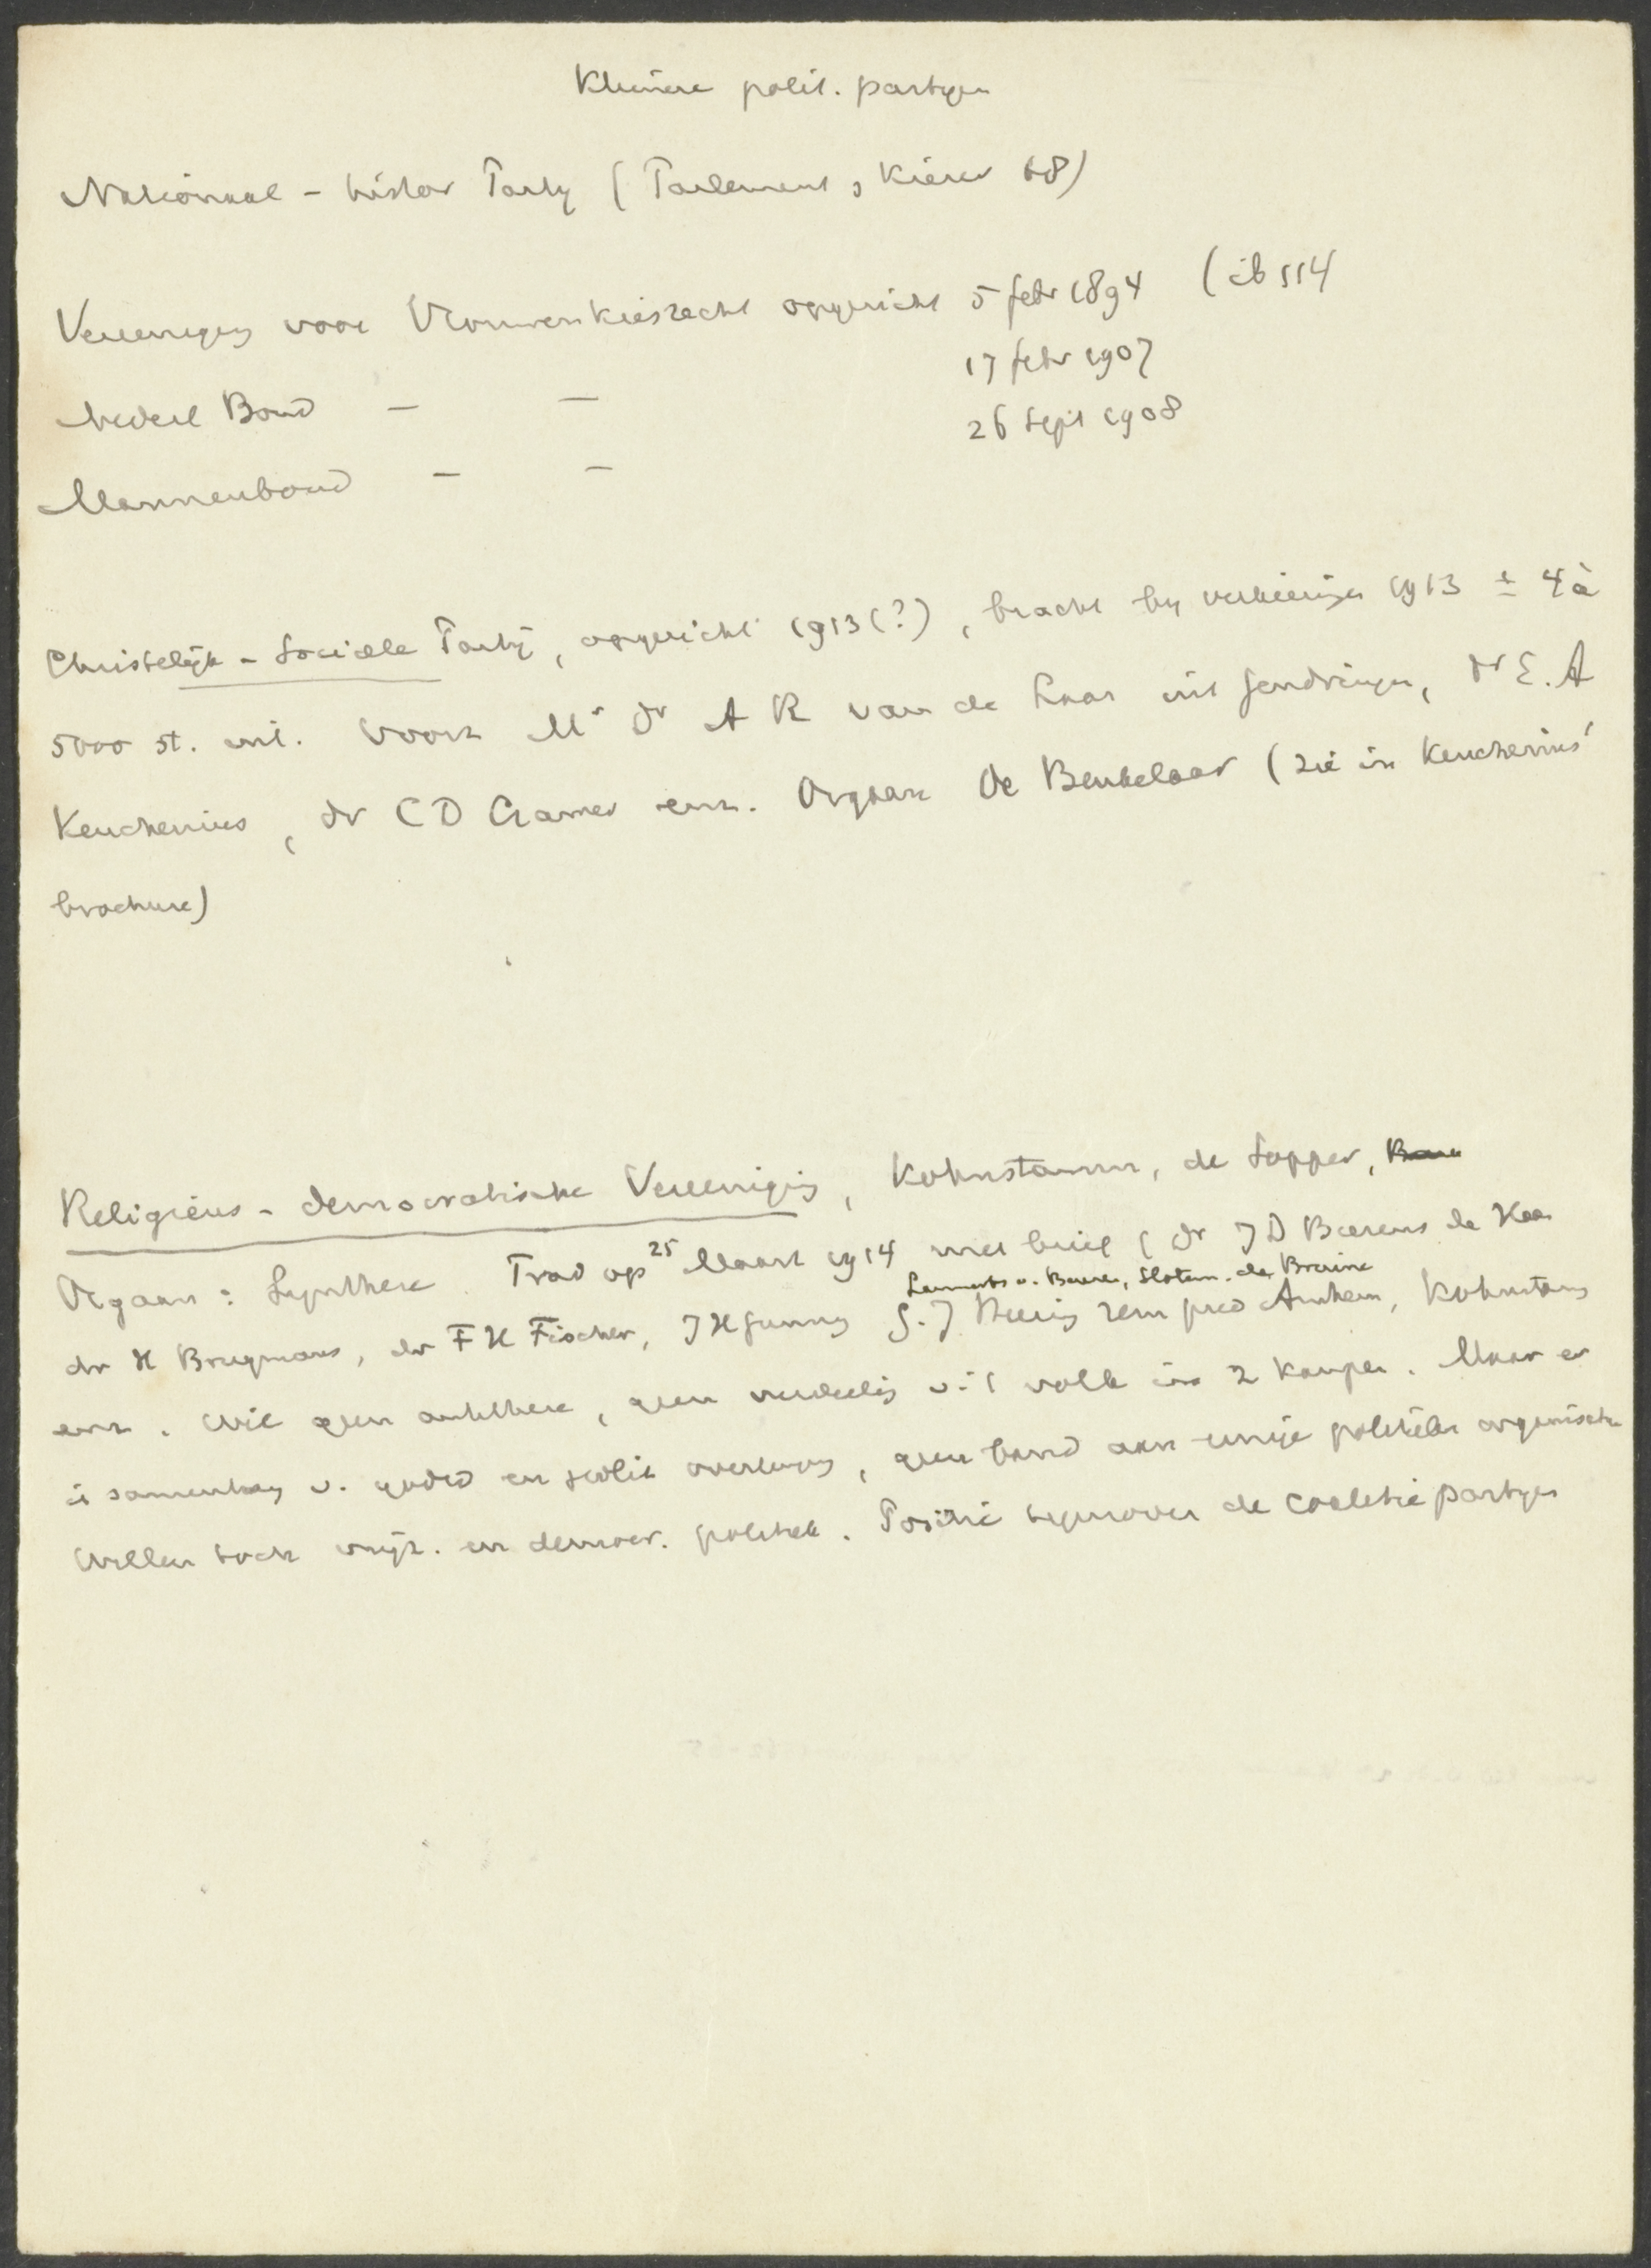 Kleinere polit. partijen
Nationaal - histor Partij (Parlement &amp; Kiezer 68)
Vereeniging voor Vrouwenkiesrecht opgericht 5 febr 1894 (ib 114
17 febr 1907
Nederl Bond — —
26 Sept 1908
Mannenbond — —
Christelijk - Sociale Partij, opgericht 1913 (?), bracht bij verkiezingen 1913 ± 4 à
5000 st. uit. Voorz Mr Dr A R van de Laar uit Gendringen, Dr E. A
Keuchenius, dr C D Cramer enz. Orgaan De Beukelaar (zie in Keuchenius'
brochure)
Religieus - democratische Vereeniging, Kohnstamm, de Sopper,
Orgaan: Synthese. Trad op 25 Maart 1914 met brief ( dr J D Bierens de Haan
Lammerts v. Bueren, Slotem. de Bruine
dr H Brugmans, dr F H Fischer, J H Gunning J. J Rem pred Arnhem, Kohnstamm
enz. Wil geen antithese, geen verdeeling v. 't volk in 2 kampen. Maar er
is samenhang v. godsd en polit overtuig, geen band aan eenige politieke organisatie
Willen toch vrijz. en democr. politiek. Positie tegenover de coalitie partijen